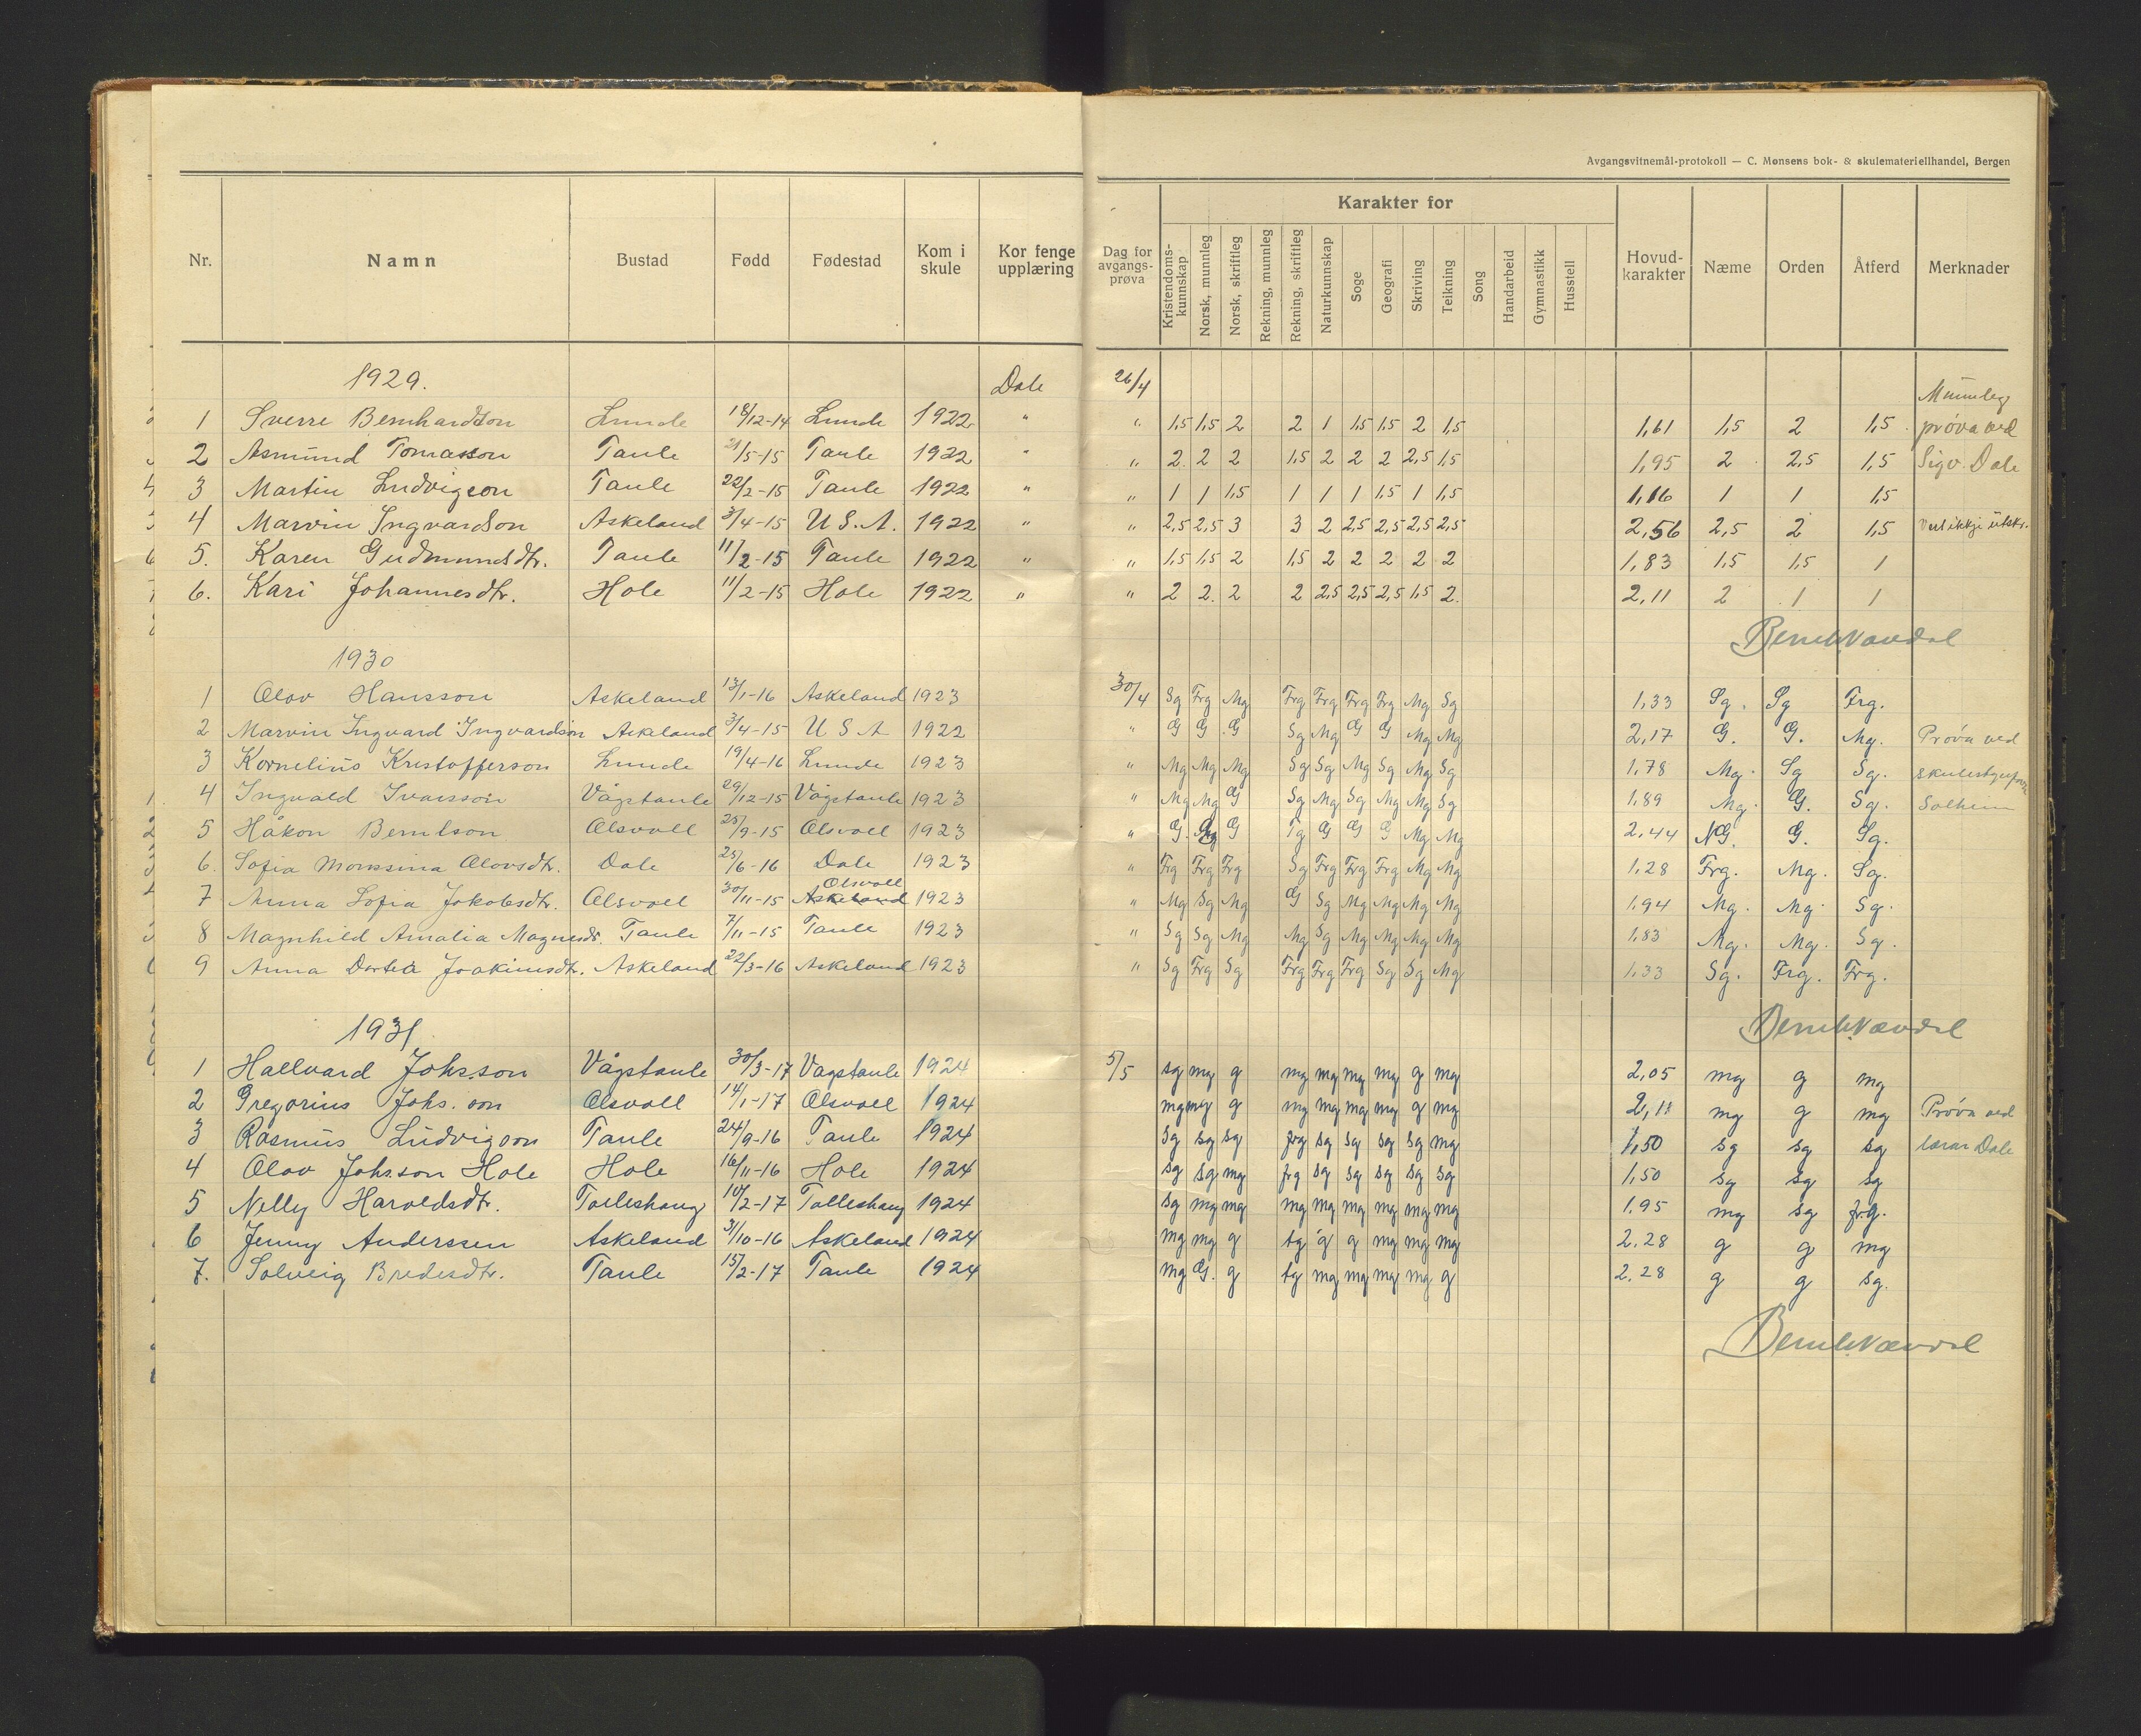 Avgangsvitnemål-protokoll — C. Monsens bok- & skulemateriellhandel, Bergen
Nr. Namn Bustad Fødd Fødestad Kom i skule Kor fenge upplæring Dag for avgangs-prøva Karakter for Hovud-karakter Næme Orden Åtferd Merknader
Kristendoms-kunnskap Norsk, munnleg Norsk, skriftleg Rekning, munnleg Rekning, skriftleg Naturkunnskap Soge Geografi Skriving Teikning Song Handarbeid Gymnastikk Husstell
1929. Dale 26/4 Munnleg
1 Sverre Bernhardson Lunde 18/12-14 Lunde 1922 " " 1,5 1,5 2 2 1 1,5 1,5 2 1,5 1,61 1,5 2 1,5 prøva ved
2 Asmund Tomasson Taule 21/5-15 Taule 1922 " " 2 2 2 1,5 2 2 2 2,5 1,5 1,95 2 2,5 1,5 Sigv. Dale
3 Martin Ludvigson Taule 22/2-15 Taule 1922 " " 1 1 1,5 1 1 1 1,5 1 1,5 1,16 1 1 1,5
4 Marvin Ingvardson Askeland 3/4-15 U.S.A. 1922 " " 2,5 2,5 3 3 2 2,5 2,5 2,5 2,5 2,56 2,5 2 1,5 Vert ikkje utskr.
5. Karen Gudmundsdtr. Taule 11/2-15 Taule 1922 " " 1,5 1,5 2 1,5 2 2 2 2 2 1,83 1,5 1,5 1
6. Kari Johannesdtr. Hole 11/2-15 Hole 1922 " " 2 2 2 2 2,5 2,5 2,5 1,5 2 2,11 2 1 1
1930
1 Olov Hansson Askeland 13/1-16 Askeland 1923 30/4 Sg Frg Mg Frg Frg Frg Frg Mg Sg 1,33 Sg. Sg Frg.
2 Marvin Ingvard Ingvardson Askeland 3/4-15 U S A 1922 " G G G Sg Mg G G Mg Mg 2,17 G. G. Mg. Prøva ved
3 Kornelius Kristofferson Lunde 19/4-16 Lunde 1923 " Mg Mg Mg Sg Sg Mg Sg Mg Sg 1,78 Mg. Sg Sg.
4 Ingvald Ivarsson Vågstaule 29/12-15 Vågstaule 1923 " Mg Mg G Sg Mg Sg Mg Mg Sg 1,89 Mg. G. Sg. Solheim
5 Håkon Berntson Olsvoll 25/9-15 Olsvoll 1923 " G. G Tg G G G Mg Mg 2,44 NG. G. Sg.
6. Sofia Monsina Olovsdtr. Dale 25/6-16 Dale 1923 " Frg Frg Frg Sg Frg Frg Frg Mg Mg 1,28 Frg. Mg. Sg.
7 Anna Sofia Jakobsdtr. Olsvoll 30/11-15 Askeland Olsvoll 1923 " Mg Sg Mg G Sg Mg Mg Mg Mg 1,94 Mg. Mg. Sg.
8 Magnhild Amalia Magnesdr. Taule 7/11-15 Taule 1923 " Sg Sg Mg Mg Sg Mg Mg Mg Mg 1,83 Mg. Mg. Sg.
9 Anna Dortea Joakimsdtr. Askeland 22/3-16 Askeland 1923 " Sg Frg Sg Frg Frg Frg Sg Sg Mg 1,33 Sg. Frg. Frg.
1931
1 Hallvard Johs.son Vågstaule 30/3-17 Vagstaule 1924 5/5 sg mg g mg mg mg mg g mg 2,05 mg g mg
2 Gregorius Johs. son Olsvoll 14/1-17 Olsvoll 1924 mg mg g mg mg mg mg g mg 2,11 mg g mg Prøva ved
3 Rasmus Ludvigson Taule 24/9-16 Taule 1924 Sg sg sg frg sg sg sg sg mg 1,50 sg sg sg lærar Dale
4 Olav Johs.son Hole Hole 16/11-16 Hole 1924 sg sg mg frg sg sg sg sg sg 1,50 sg sg sg
5 Nelly Haroldsdtr. Tolleshaug 10/2-17 Tolleshaug 1924 sg mg mg mg mg mg mg mg mg 1.95 mg sg frg.
6 Jenny Anderssen Askeland 31/10-16 Askeland 1924 mg mg g tg g g mg mg mg 2.28 g g mg
7. Solveig Bredesdtr. Taule 15/2-17 Taule 1924 mg G. g tg mg mg mg mg g 2.28 g g sg.